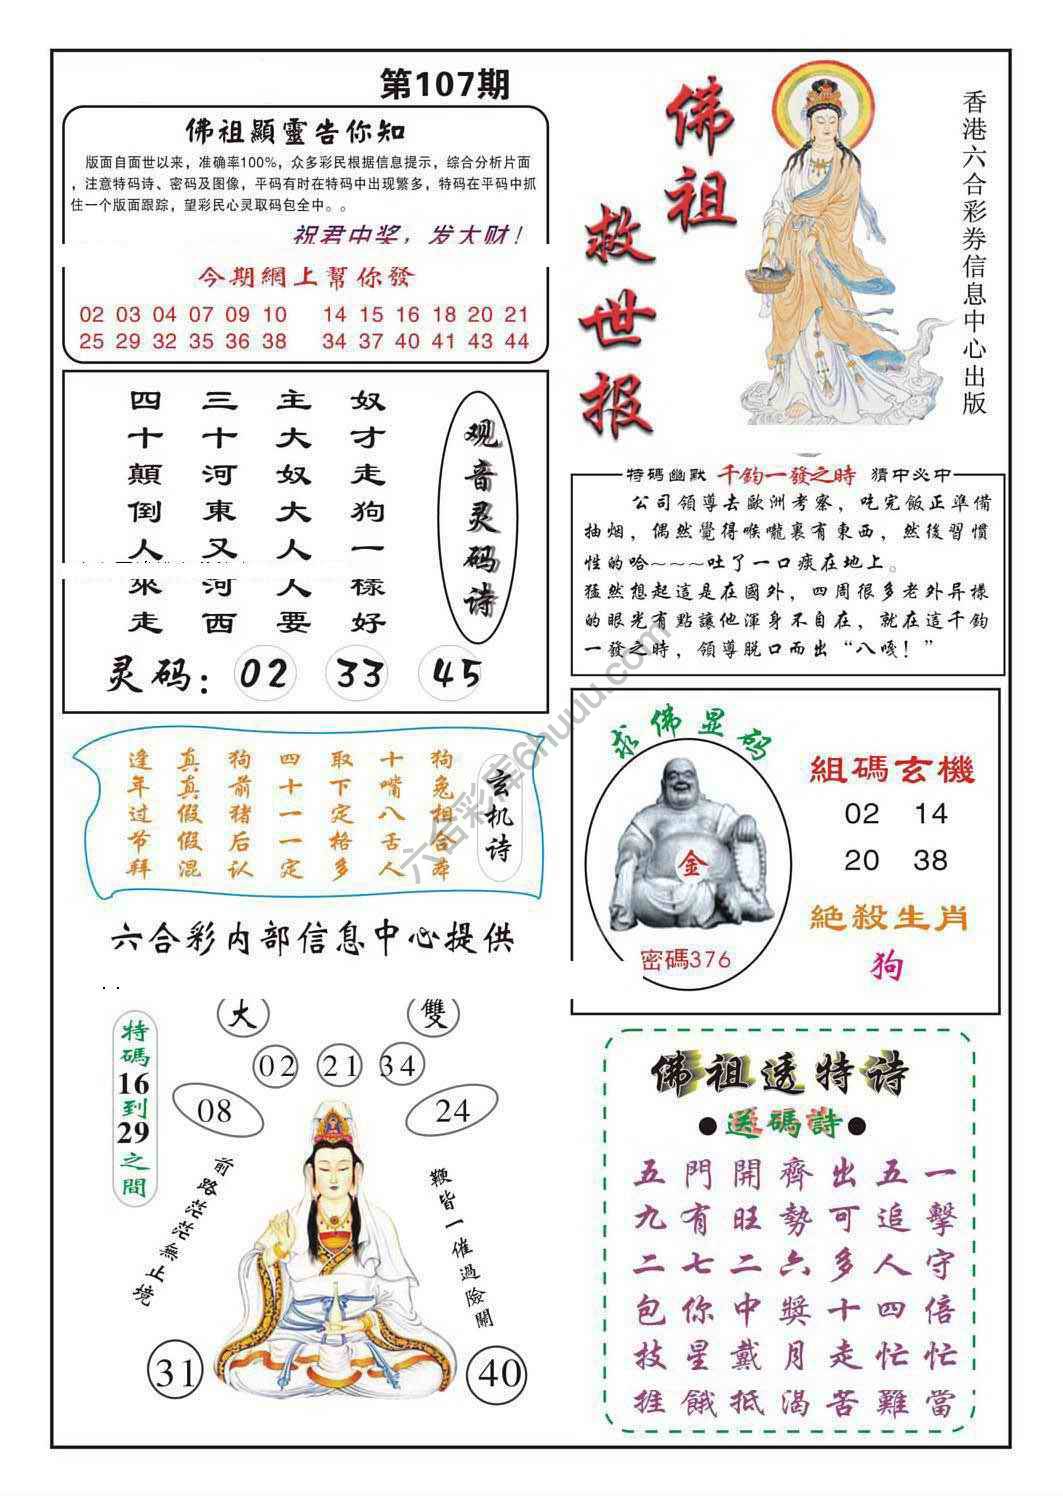 第107期
佛祖顯靈告你知
版面自面世以来，准确率100%，众多彩民根据信息提示，综合分析片面
，注意特码诗、密码及图像，平码有时在特码中出现繁多，特码在平码中抓
住一个版面跟踪，望彩民心灵取码包全中。。
祝君中奖，发大财！
今期網上幫你發
02 03 04 07 09 10 14 15 16 18 20 21
25 29 32 35 36 38 34 37 40 41 43 44
佛祖
救世报
香港六合彩券信息中心出版
观音灵码诗
奴才走狗一樣好
主大奴大人人要
三十河東又河西
四十顛倒人來走
灵码：02 33 45
特碼幽默 千鈞一發之時 猜中必中
公司領導去歐洲考察，吃完飯正準備
抽烟，偶然覺得喉嚨裏有東西，然後習慣
性的哈~~~~吐了一口痰在地上。
猛然想起這是在國外，四周很多老外异樣
的眼光有點讓他渾身不自在，就在這千鈞
一發之時，領導脱口而出“八嘎！”
玄机诗
狗兔相合
十嘴八舌人
取下定格多
四十一一定
狗前猪后认
真真假假混
逢年过节拜
六合彩内部信息中心提供
求佛显码
金
密碼376
組碼玄機
02 14
20 38
絕殺生肖
狗
大 雙
02 21 34
08 24
特碼16到29之間
前路茫茫無止境
鞭皆一催過險關
31 40
佛祖透特诗
●送碼詩●
五門開齊出五一
九有旺勢可追擊
二七二六多人守
包你中獎十四倍
技星戴月走忙忙
捱餓抵渴苦難當
六合彩库6huuu.com